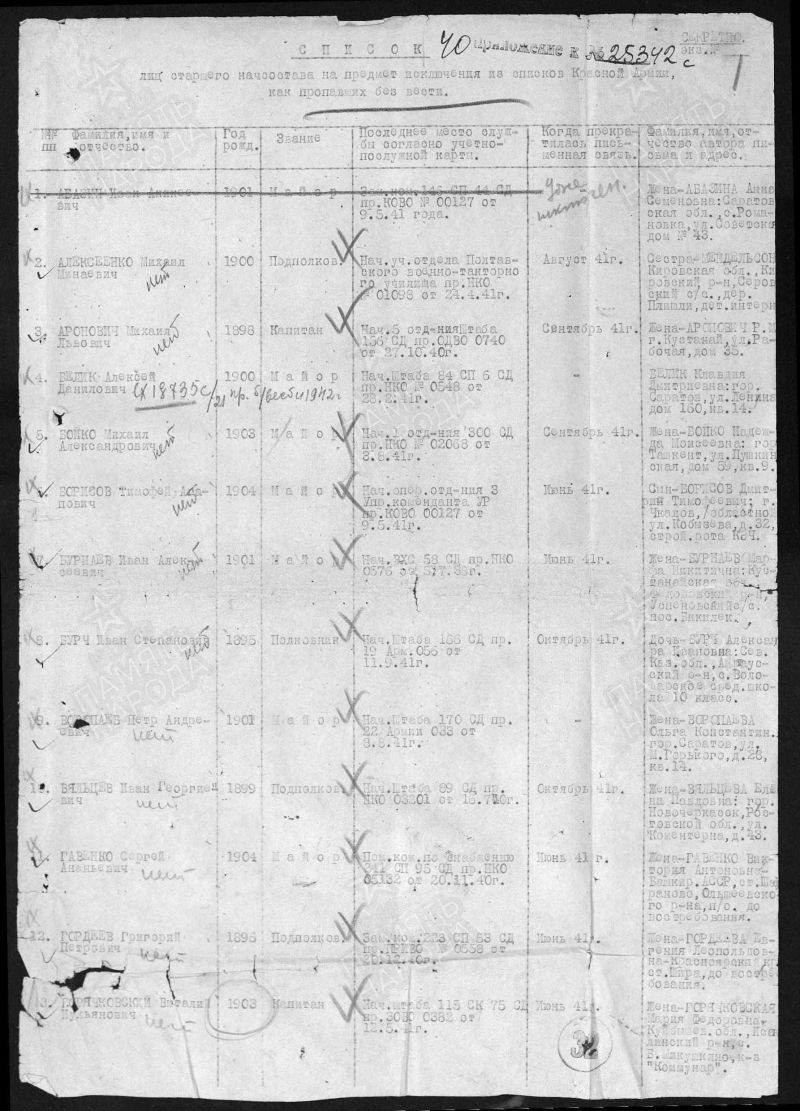 СЕКРЕТНО.
экз.№ 1
СПИСОК 40 приложение к № 25342с
лиц старшего начсостава на предмет исключения из списков Красной Армии,
как пропавших без вести.
№№ пп
Фамилия, имя и отчество.
Год рожд.
Звание
Последнее место службы согласно учетно-послужной карты.
Когда прекратилась письменная связь.
Фамилия, имя, отчество автора письма и адрес.
1. АБАЗИН Иван
вич
1901
Майор
Зам.ком.146 СП 44 СД
пр.КОВО № 00127 от
9.5.41 года.
Жена-АБАЗИНА Анна
Семеновна:Саратов
ская обл.,с.Рома-
новка,ул.Советская
дом № 43.
2. АЛЕКСЕЕНКО Михаил
Минаевич
нет
1900
Подполков.
Нач.уч.отдела Полтав-
ского военно-такторно
го училища пр.НКО
№ 01098 от 24.4.41г.
Август 41г.
Сестра-МЕНДЕЛЬСОН
Кировская обл.,Ки
ровский р-н,Серов
ский с/с.,дер.
дет.интерн
3. АРОНОВИЧ Михаил
Львович
нет
1898
Капитан
Нач.5 отд-нияШтаба
156 СД пр.ОДВО 0740
от 27.10.40г.
Сентябрь 41г.
Жена-АРОНОВИЧ Р.М
г.Кустанай,ул.Ра-
бочая,дом 35.
4. БЕЛИК Алексей
Данилович
сх 18735с/21 пр. б/вести 1942г
1900
Майор
Нач.Штаба 84 СП 6 СД
пр.НКО № 0548 от
28.2.41г.
БЕЛИК Клавдия
Дмитриевна:гор.
Саратов,ул.Ленина
дом 160,кв.14.
5. БОЙКО Михаил
Александрович
нет
1903
Майор
Нач.1 отд-ния 300 СД
пр.НКО № 02068 от
3.8.41г.
Сентябрь 41г.
Жена-БОЙКО Надеж-
да Моисеевна: гор
Ташкент,ул.Пушкин
ская,дом 59,кв.9.
6. БОРИСОВ Тимофей
пович
нет
1904
Майор
Нач.опер.отд-ния 3
Упр.коменданта УР
пр.КОВО 00127 от
9.5.41г.
Июнь 41г.
Сын-БОРИСОВ Дмит-
рий Тимофеевич; г.
Чкалов,/областной
ул.Кобызева,д.32,
строй.рота КЭЧ.
7. БУРНАЕВ Иван Алек
сеевич
нет
1901
Майор
Нач.ВХС 58 СД пр.НКО
Июнь 41г.
Жена-БУРНАЕВ Мар-
Никитична:Кус-
танайская обл.
р-н
с/с.
пос.
8. БУРЧ Иван Степанович
нет
1895
Полковник
Нач.Штаба 166 СД пр.
19 Арм.056 от
11.9.41г.
Октябрь 41г.
Дочь-БУРЧ Алексан
ра Ивановна:Сев.
Каз.обл.,
ский р-н,с.Воло-
дарское сред.шко-
ла 10 класс.
9. ВОРОПАЕВ Петр Андре-
евич
нет
1901
Майор
Нач.Штаба 170 СД пр.
22 Армии 033 от
3.8.41г.
Жена-ВОРОПАЕВА
Ольга Константин.
гор.Саратов,ул.
М.Горького,д.28,
кв.14.
10. ВЯЛЬЦЕВ Иван Георгие
вич
нет
1899
Подполков.
Нач.Штаба 89 СД пр.
НКО 03201 от
Октябрь 41г.
Жена-ВЯЛЬЦЕВА Еле
на Павловна: гор.
Новочеркасск,Рос-
товской обл.,ул.
Коментерна,д.43.
11. ГАВЕНКО Сергей
Ананьевич
нет
1904
Майор
Пом.ком.по Снабжению
341 СП 95 СД пр.НКО
05132 от 20.11.40г.
Июнь 41г.
Жена-ГАВЕНКО Вик-
тория Антоновна-
Башкир.АССР,ст.Ша
раново,
го р-на,п/о. до
востребования.
12. ГОРДЕЕВ Григорий
Петрович
нет
1896
Подполков.
Зам.ком.223 СП 53 СД
0558 от
12.40г.
Июнь 41г.
Жена-ГОРДЕЕВА Ев-
гения Леопольдов-
на-Красноярский кр
ст.Шира,до востре
бования.
13. ГОРЯЧКОВСКИЙ Виталий
Мульянович
нет
1903
Капитан
Нач.штаба 115 СК 75 СД
пр.ЗОВО 0382 от
12.5.41г.
Июнь 41г.
Жена-ГОРЯЧКОВСКАЯ
Мария Федоровна-
Куйбышев.обл.,
линский р-н,с.
к-з
"Коммунар".
32